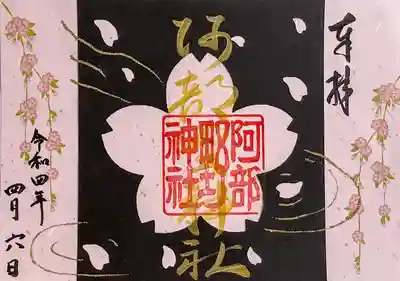 奉拝
阿部野神社
阿部
野
神社
令和四年
四月六日